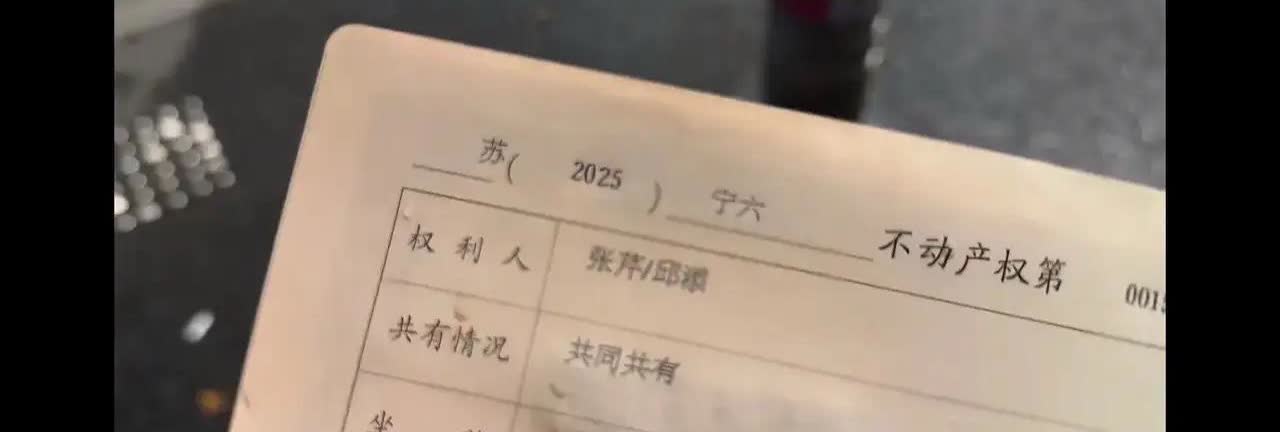 苏( 2025 ) 宁六 不动产权第 0015
权利人 张芹/邱
共有情况 共同共有
坐